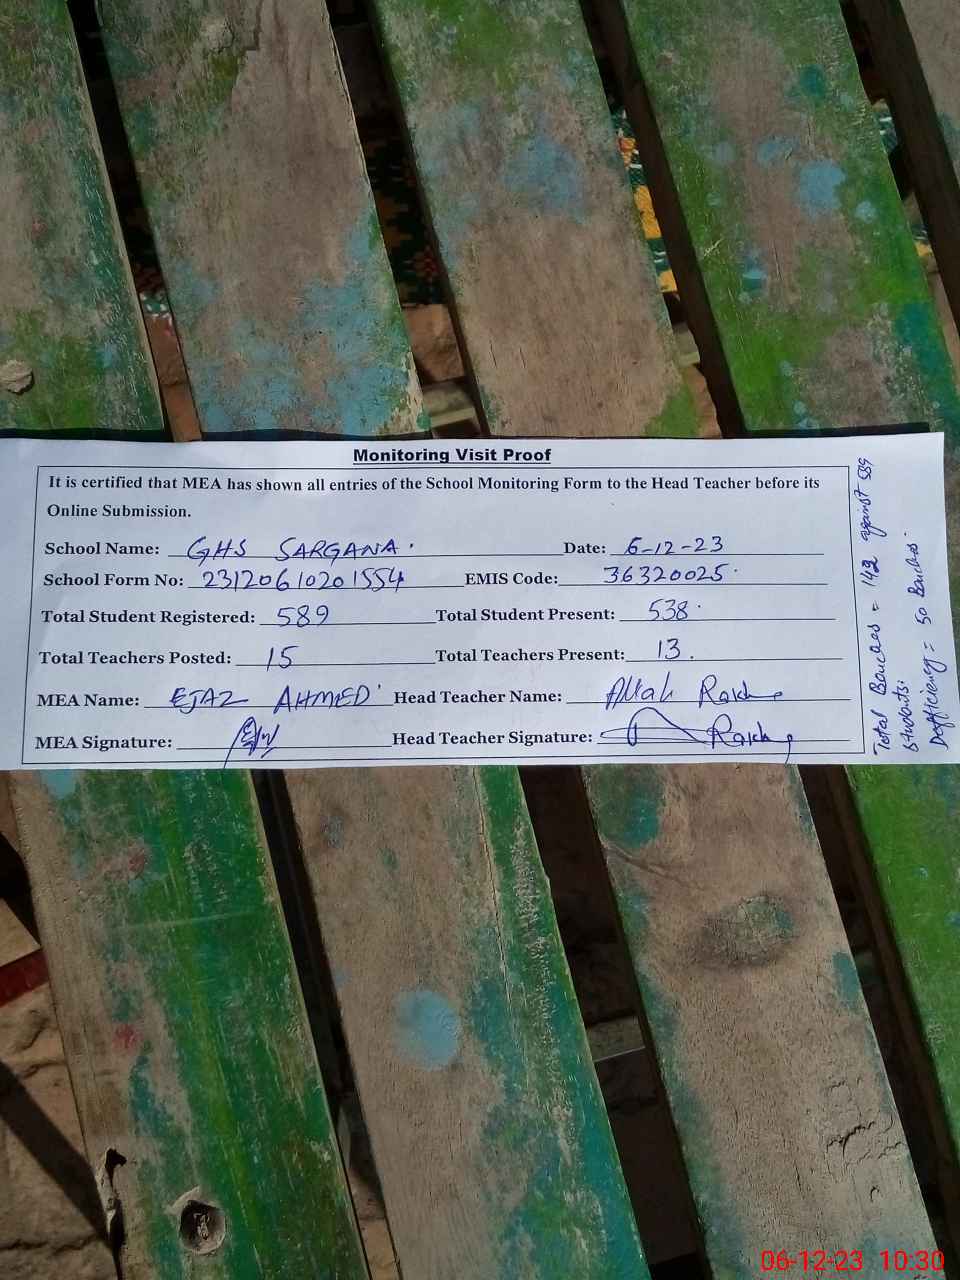 Monitoring Visit Proof
It is certified that MEA has shown all entries of the School Monitoring Form to the Head Teacher before its
Online Submission.
School Name: GHS SARGANA. Date: 6-12-23
School Form No: 23120610201554 EMIS Code: 36320025.
Total Student Registered: 589 Total Student Present: 538.
Total Teachers Posted: 15 Total Teachers Present: 13.
MEA Name: EJAZ AHMED Head Teacher Name: Allah Rakha
MEA Signature: Head Teacher Signature: Rakha
Total Benches = 142 against 589
students.
Defficiency = 50 Benches.
06-12-23 10:30